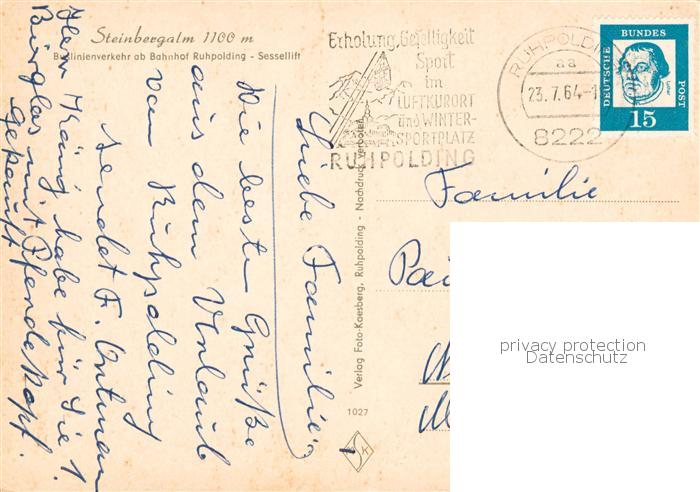 Steinbergalm 1100 m
Buslinienverkehr ab Bahnhof Ruhpolding - Sessellift
Erholung, Geselligkeit
Sport
im
LUFTKURORT
und WINTER-
SPORTPLATZ
RUHPOLDING
RUHPOLDING
aa
23.7.64-1
8222
DEUTSCHE
BUNDES
POST
Luther
15
Liebe Familie
Die besten Grüße
aus dem Urlaub
von Ruhpolding
sendet F.
Herr habe für Sie 1.
Bierglas mit Pferdekopf.
gekauft
Verlag Foto-Kaesberg, Ruhpolding - Nachdruck verboten
1027
K
Familie
privacy protection
Datenschutz